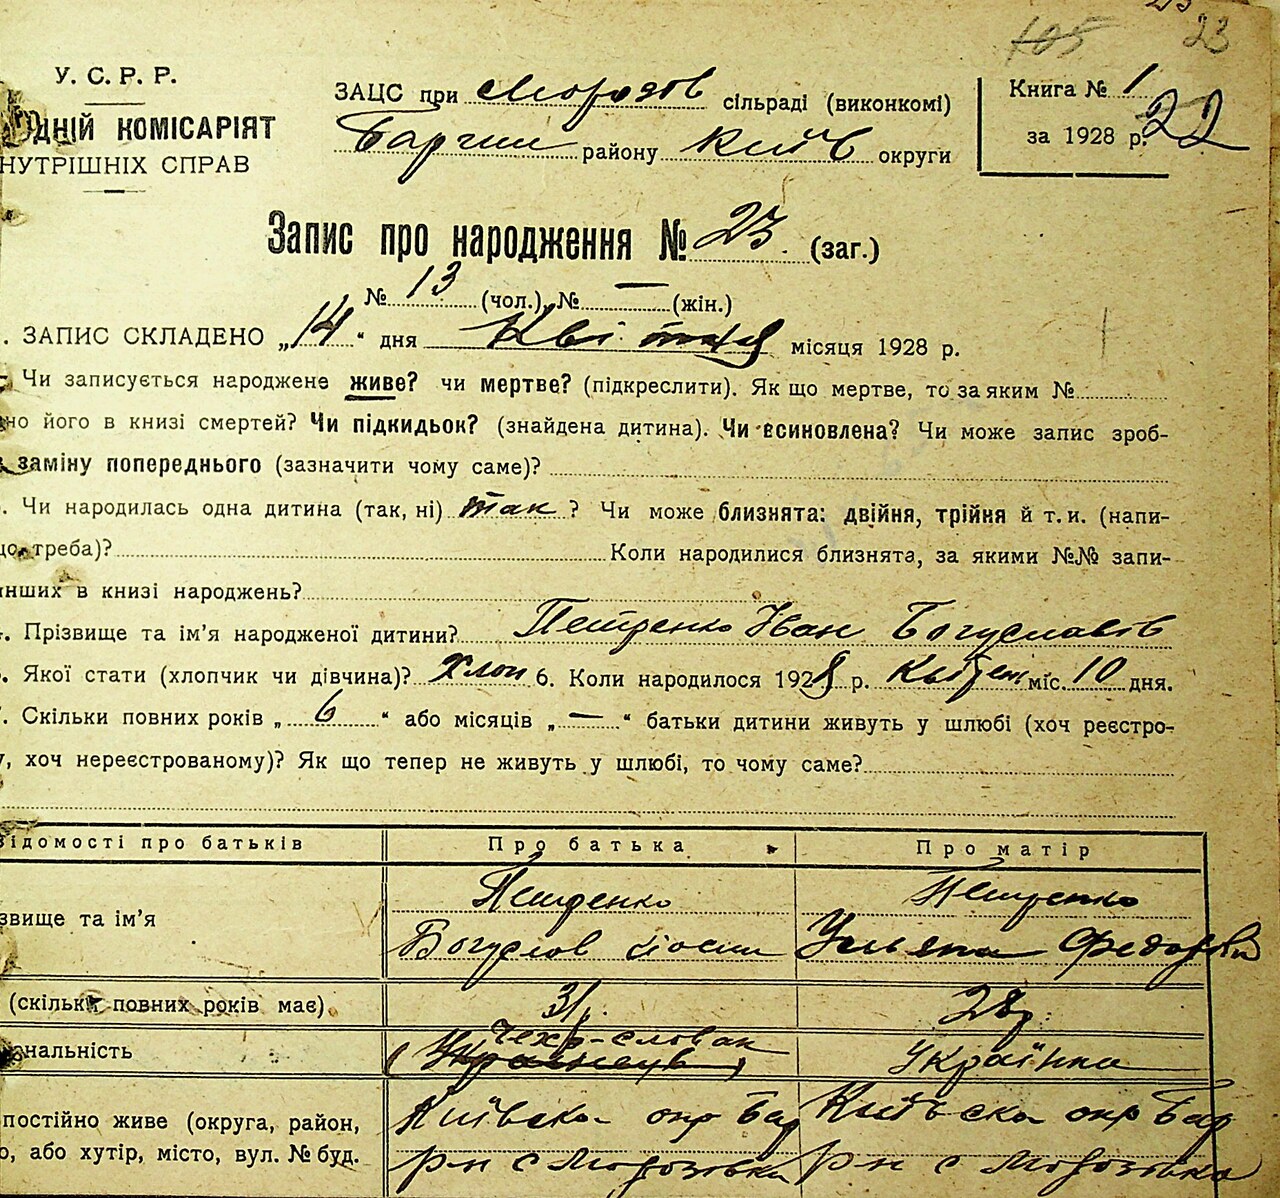 105 23
У. С. Р. Р.
ДНІЙ КОМІСАРІЯТ
НУТРІШНІХ СПРАВ
ЗАЦС при Морозов сільраді (виконкомі)
району Київ округи
Книга № 1
за 1928 р. 22
Запис про народження № 23 (заг.)
№ 13 (чол.), № — (жін.)
. ЗАПИС СКЛАДЕНО „14" дня Квітня місяця 1928 р.
Чи записується народжене живе? чи мертве? (підкреслити). Як що мертве, то за яким №
но його в книзі смертей? Чи підкидьок? (знайдена дитина). Чи всиновлена? Чи може запис зроб-
заміну попереднього (зазначити чому саме)?
. Чи народилась одна дитина (так, ні) так ? Чи може близнята: двійня, трійня й т. и. (напи-
що треба)? Коли народилися близнята, за якими №№ запи-
инших в книзі народжень?
. Прізвище та ім'я народженої дитини? Петренко Іван Богуславів
. Якої стати (хлопчик чи дівчина)? хлоп 6. Коли народилося 1928 р. Квітен міс. 10 дня.
. Скільки повних років „ 6 " або місяців „ — " батьки дитини живуть у шлюбі (хоч реєстро-
у, хоч нереєстрованому)? Як що тепер не живуть у шлюбі, то чому саме?
ідомості про батьків Про батька Про матір
звище та ім'я Петренко Петренко
Богуслов Уляна Федорівна
(скільки повних років має) 31 р. 28 р.
нальність Чехо-словак (Українець) Українка
постійно живе (округа, район, Київська окр Бар Київська окр Бар
о, або хутір, місто, вул. № буд. р-н с Морозівка р-н с Морозівка